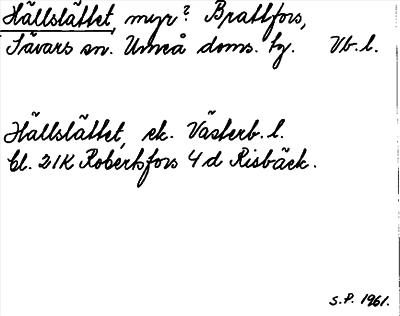 Hällslättet, myr? Brattfors,
Sävars sn. Umeå doms. hg. Vb.l.
Hällslättet, ek. Västerb.l.
bl. 21K Robertsfors 4d Risbäck.
S.P. 1961.